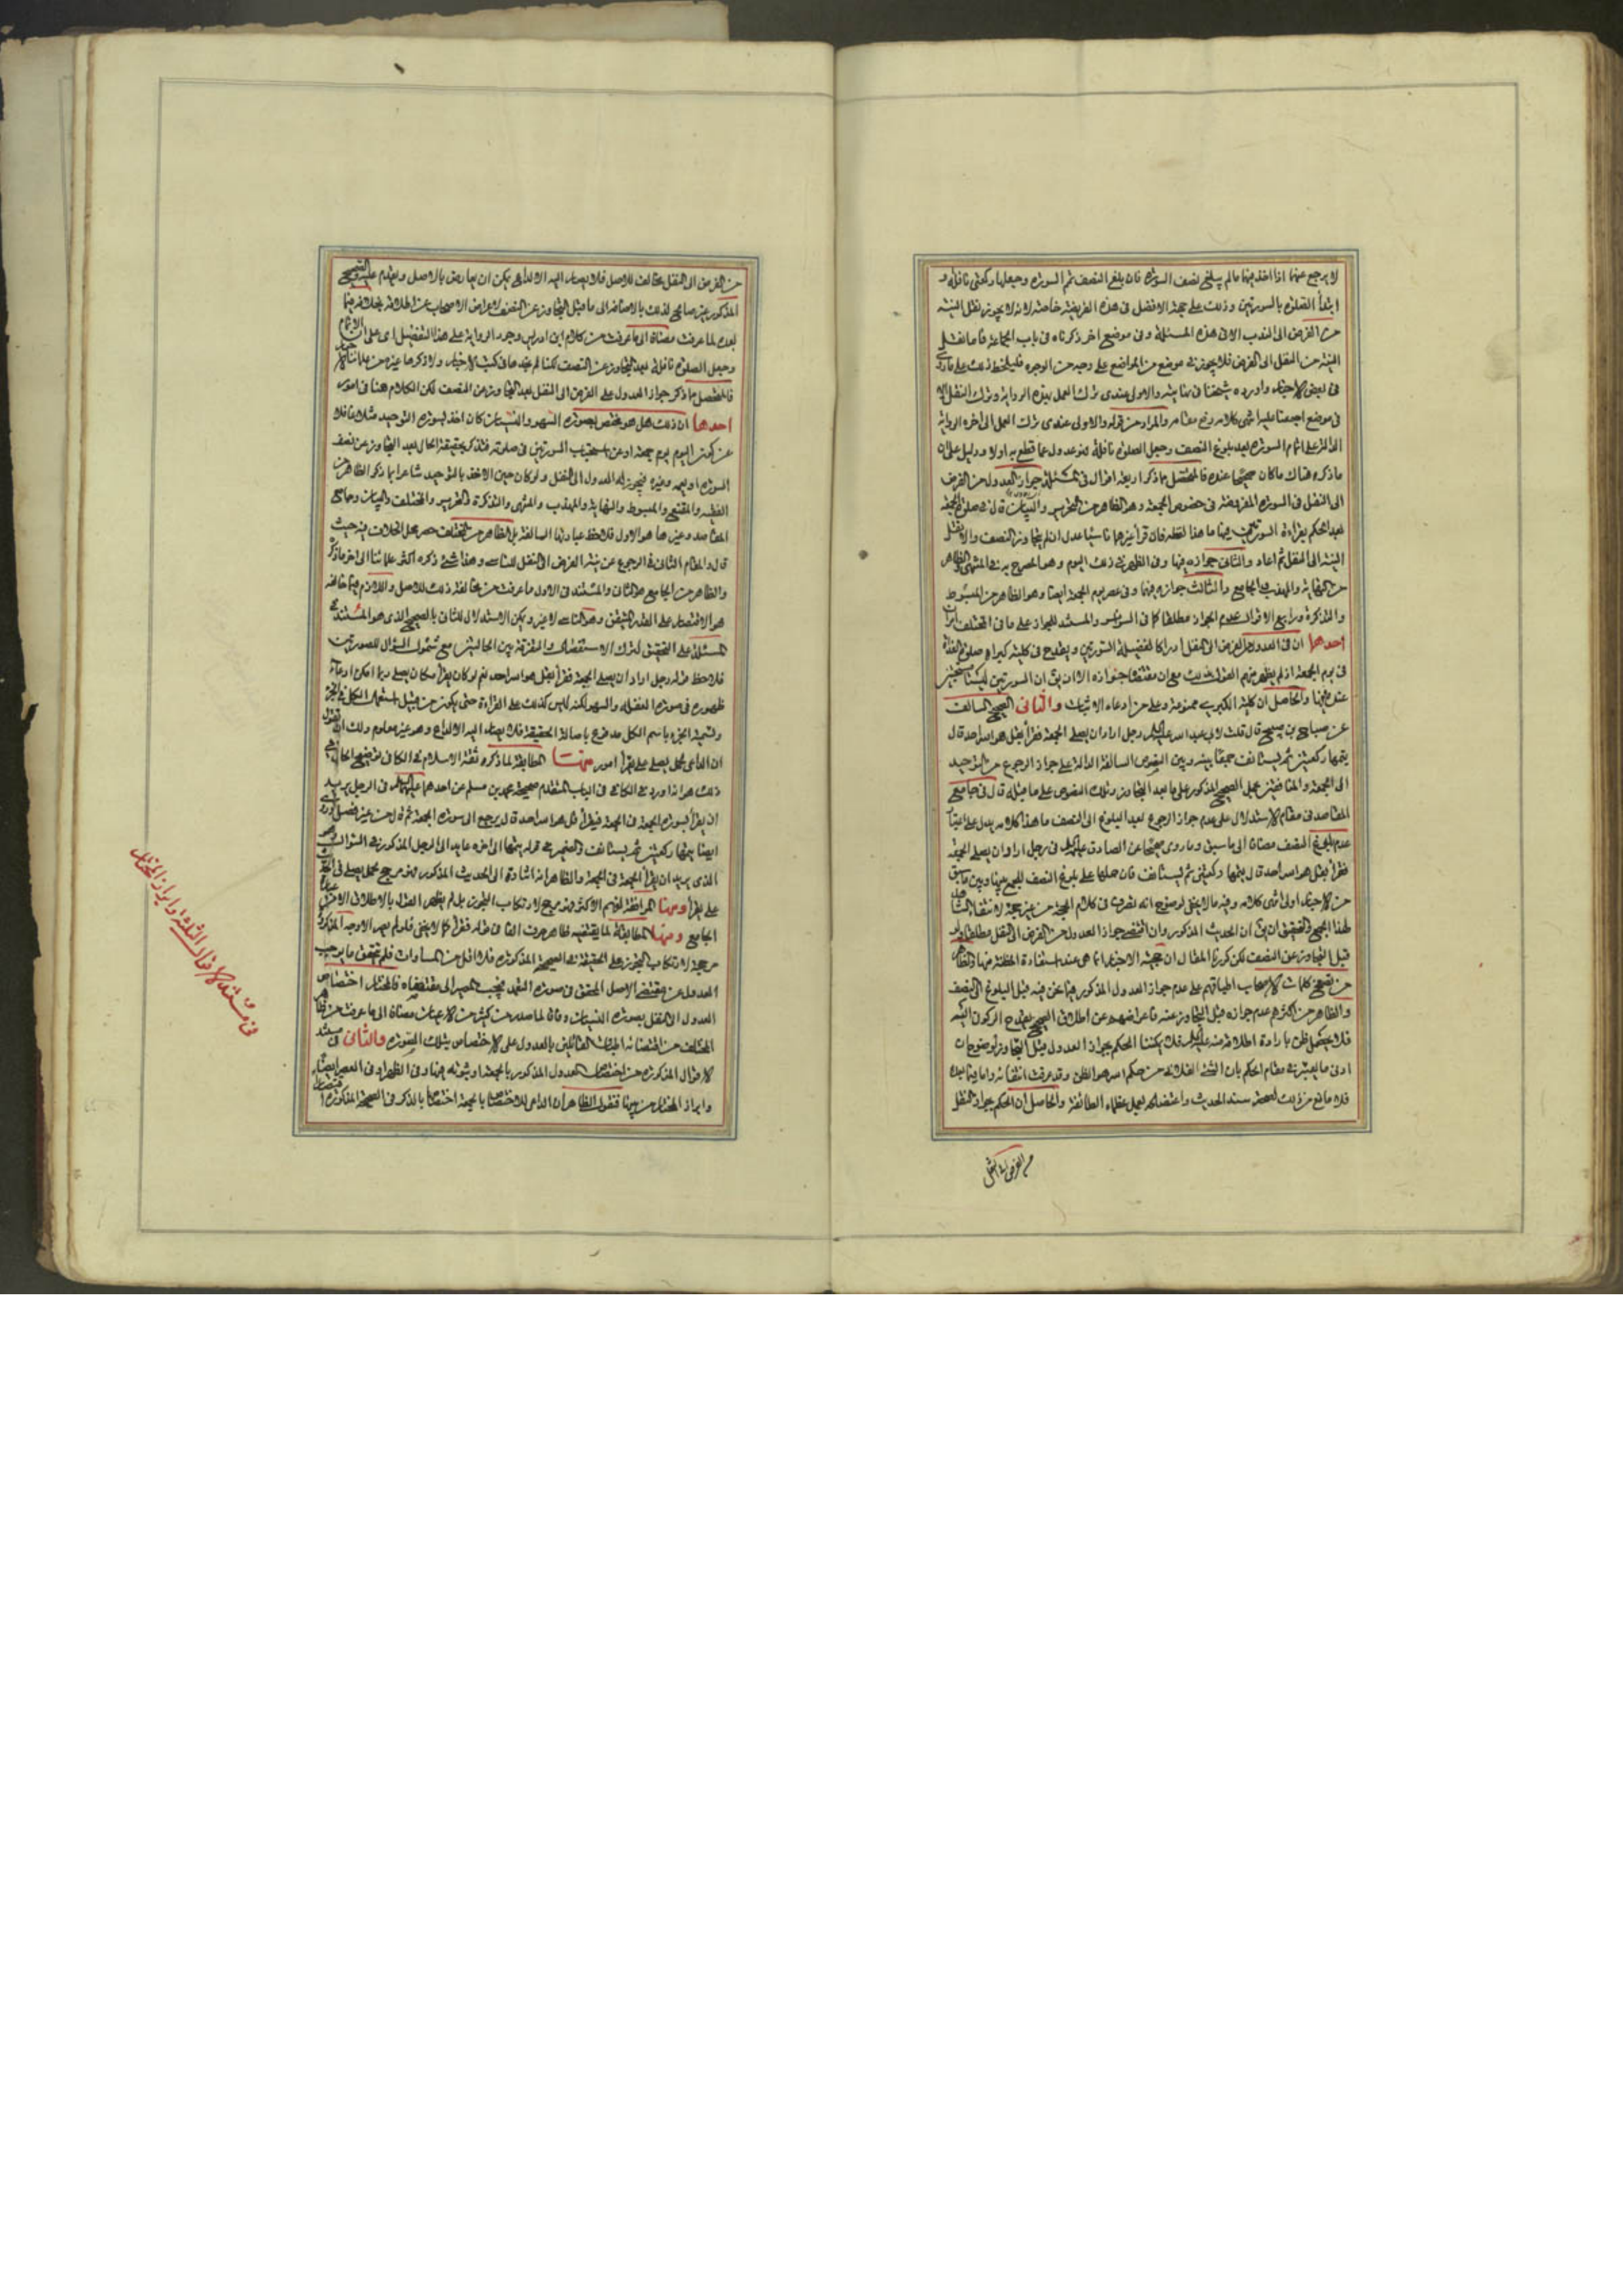 لا يرجع عنهما اذا اخذ فيهما ما لم يبلغ نصف السورة فان بلغ النصف تمم السورة وجعلها ركعتي نافلة و
ابتدأ الصلوة بالسورتين وذلك على جهة الافضل في هذه الفريضة خاصة لانه لا يجوز نقل النية
من الفرض الى الندب الا في هذه المسئلة وفي موضع اخر ذكرناه في باب الجماعة فاما نقل
النية من النفل الى الفرض فلا يجوز في موضع من المواضع على وجه من الوجوه فليلحظ ذلك على ما روي
في بعض الاخبار واورده شيخنا في نهايته والاولى عندي ترك العمل بهذه الرواية وترك النقل الا
في موضع اجمعنا عليه انتهى كلامه رفع مقامه والمراد من قوله والاولى عندي ترك العمل الى اخره الرواية
الدالة على اتمام السورة بعد بلوغ النصف وجعل الصلوة نافلة فهو عدول عما قطع به اولا ودليل على ان
ما ذكره هناك ما كان صحيحا عنده فالمحصل مما ذكر اربعة اقوال في المسئلة جواز العدول من الفرض
الى النفل في السورة المفروضة في خصوص الجمعة وهو الظاهر من التحرير والبيان قال في صلوة الجمعة
بعد الحكم بقراءة السورتين فيها ما هذا لفظه فان قرأ غيرهما ناسيا عدل ان لم يتجاوز النصف والا نقل
النية الى النفل ثم اعاد والثاني جوازه فيها وفي الظهر في ذلك اليوم وهو المصرح به في المنتهى والظاهر
من النهاية والمهذب والجامع والثالث جوازه فيهما وفي عصر يوم الجمعة ايضا وهو الظاهر من المبسوط
والتذكرة ورابع الاقوال عدم الجواز مطلقا كما في السرائر والمستند للجواز على ما في المختلف امران
احدهما ان في العدول من الفرض الى النفل ادراكا لفضيلة السورتين ويقدح في كليته كبراه صلوة الغداة
في يوم الجمعة اذ لم يظهر منهم القول بذلك مع ان مقتضاه جوازه الا ان يق ان السورتين ليستا مستحبتين
عندهم فيها والحاصل ان كلية الكبرى ممنوعة وعلى من ادعاه الاثبات والثاني الصحيح السالف
عن صباح بن صبيح قال قلت لابي عبد الله عليه السلام رجل اراد ان يصلي الجمعة فقرأ بقل هو الله احد قال
يتمها ركعتين ثم يستأنف جمعا بينه وبين النصوص السالفة الدالة على جواز الرجوع من التوحيد
الى الجمعة والمنافقين بحمل الصحيح المذكور على ما بعد التجاوز وتلك النصوص على ما قبله قال في جامع
المقاصد في مقام الاستدلال على عدم جواز الرجوع بعد البلوغ الى النصف ما هذا كلامه يدل على اعتبار
عدم بلوغ النصف مضافا الى ما سبق وما روي صحيحا عن الصادق عليه السلام في رجل اراد ان يصلي الجمعة
فقرأ بقل هو الله احد قال يتمها ركعتين ثم يستأنف فان حملها على بلوغ النصف للجمع بينها وبين ما سبق
من الاخبار اولى انتهى كلامه وفيه ما لا يخفى
لهذا الجمع والتحقيق ان يق ان الحديث المذكور وان اقتضى جواز العدول من الفرض الى النفل مطلقا ولو
قبل التجاوز عن النصف
من تصفح كلمات الاصحاب اطباقهم على عدم جواز العدول المذكور فيما نحن فيه قبل البلوغ الى النصف
والظاهر من اكثرهم عدم جوازه قبل التجاوز عنه فاعراضهم عن اطلاق الصحيح يقدح الركون اليه
فلا يحصل ظن بارادة اطلاقه منه عليه السلام فلا يمكننا الحكم بجواز العدول قبل التجاوز لوضوح ان
ادنى ما يعتبر في مقام الحكم بان الشئ الفلاني من حكم الله هو الظن وقد عرفت انتفائه واما فيما بعده
فلا مانع من ذلك لصحة سند الحديث واعتضاده بعمل عظماء الطائفة والحاصل ان الحكم بجواز النقل
من الفرض الى النفل
من الفرض الى النفل مخالف للاصل فلا يصار اليه الا لداع يمكن ان يعارض بالاصل ويقدم عليه والصحيح
المذكور غير صالح لذلك بالاضافة الى ما قبل التجاوز عن النصف لاعراض الاصحاب عن اطلاقه بخلافه فيما
بعده لما عرفت مضافا الى ما عرفت من كلام ابن ادريس وجود الرواية على هذا التفصيل اي على الاتمام
وجعل الصلوة نافلة بعد التجاوز عن النصف لكنا لم نجدها في كتب الاخبار ولا ذكرها غيره من علمائنا
فالمحصل مما ذكر جواز العدول على الفرض الى النفل بعد التجاوز من النصف لكن الكلام هنا في امور
احدها ان ذلك هل هو مختص بصورة السهو والنسيان كان اخذ بسورة التوحيد مثلا غافلا
عن كون اليوم يوم جمعة او عن استحباب السورتين في صلوته فتذكر بحقيقة الحال بعد التجاوز عن نصف
السورة او يعمه وغيره فيجوز له العدول الى النفل ولو كان حين الاخذ بالتوحيد شاعرا بما ذكر الظاهر من
الفقيه والمقنع والمبسوط والنهاية والمهذب والمنتهى والتذكرة والتحرير والمختلف والبيان وجامع
المقاصد وغيرها هو الاول فلاحظ عباراتها السالفة بل الظاهر من المختلف حصر محل الخلاف فيه حيث
قال والمقام الثاني في الرجوع عن نية الفرض الى النفل للناسي وهذا شئ ذكره اكثر علمائنا الى اخر ما ذكره
والظاهر من الجامع هو الثاني والمستند في الاول ما عرفت من مخالفة ذلك للاصل واللازم فيما خالفه
هو الاقتصار على القدر المتيقن وهو الناسي لا غير ويمكن الاستدلال للثاني بالصحيح الذي هو المستند في
المسئلة على التحقيق لترك الاستفصال والتفرقة بين الحالتين مع شمول السؤال للصورتين
فلاحظ قوله رجل اراد ان يصلي الجمعة فقرأ بقل هو الله احد نعم لو كان يقرأ مكان يصلي ربما امكن ادعاء
ظهوره في صورة الغفلة والسهو لكنه ليس كذلك
وتسمية الجزء باسم الكل مدفوع باصالة الحقيقة فلا يصار اليه الا لداع وهو غير معلوم ولك ان تقول
ان الداعي لحمل يصلي على يقرأ امور منها المطابقة لما ذكره ثقة الاسلام في الكافي توضيح الحال في
ذلك هو انه اورد في الكافي في الباب المتقدم صحيحة محمد بن مسلم عن احدهما عليهما السلام في الرجل يريد
ان يقرأ بسورة الجمعة في الجمعة فيقرأ قل هو الله احد قال يرجع الى سورة الجمعة ثم قال من غير فصل وروي
ايضا يتمها ركعتين ثم يستأنف والضمير في قوله يتمها الى اخره عايد الى الرجل المذكور في السؤال وهو
الذي يريد ان يقرأ الجمعة في الجمعة والظاهر انه اشارة الى الحديث المذكور فهو مرجح لحمل يصلي في الحديث
على يقرأ ومنها الموافقة لفهم الاكثر فهو مرجح لارتكاب التجوز بل لم يظهر القول بالاطلاق الا من
الجامع ومنها المطابقة لما يقتضيه ظاهر حرف الفاء في قوله فقرأ كما لا يخفى فلو لم يصر الاوجه المذكورة
مرجحة لارتكاب التجوز على الحقيقة في الصحيحة المذكورة فلا اقل من المساوات فلم يتحقق ما يوجب
العدول عن مقتضى الاصل المحقق في صورة التعمد فيجب المصير الى مقتضاه فالمختار اختصاص
العدول الى النفل بصورة النسيان وفاقا لما صدر من كثير من الاعيان مضافا الى ما عرفت من ظاهر
المختلف من اقتضائه اطباق القائلين بالعدول على الاختصاص بتلك الصورة والثاني في مستند
الاقوال المذكورة من اختصاص العدول المذكور بالجمعة او ثبوته فيها وفي الظهر او في العصر ايضا
وابراز المختار من بينها فنقول الظاهر ان الداعي للاختصاص بالجمعة اختصاصها بالذكر في الصحيحة المذكورة
في مستند الاقوال الثلثة وابراز المختار